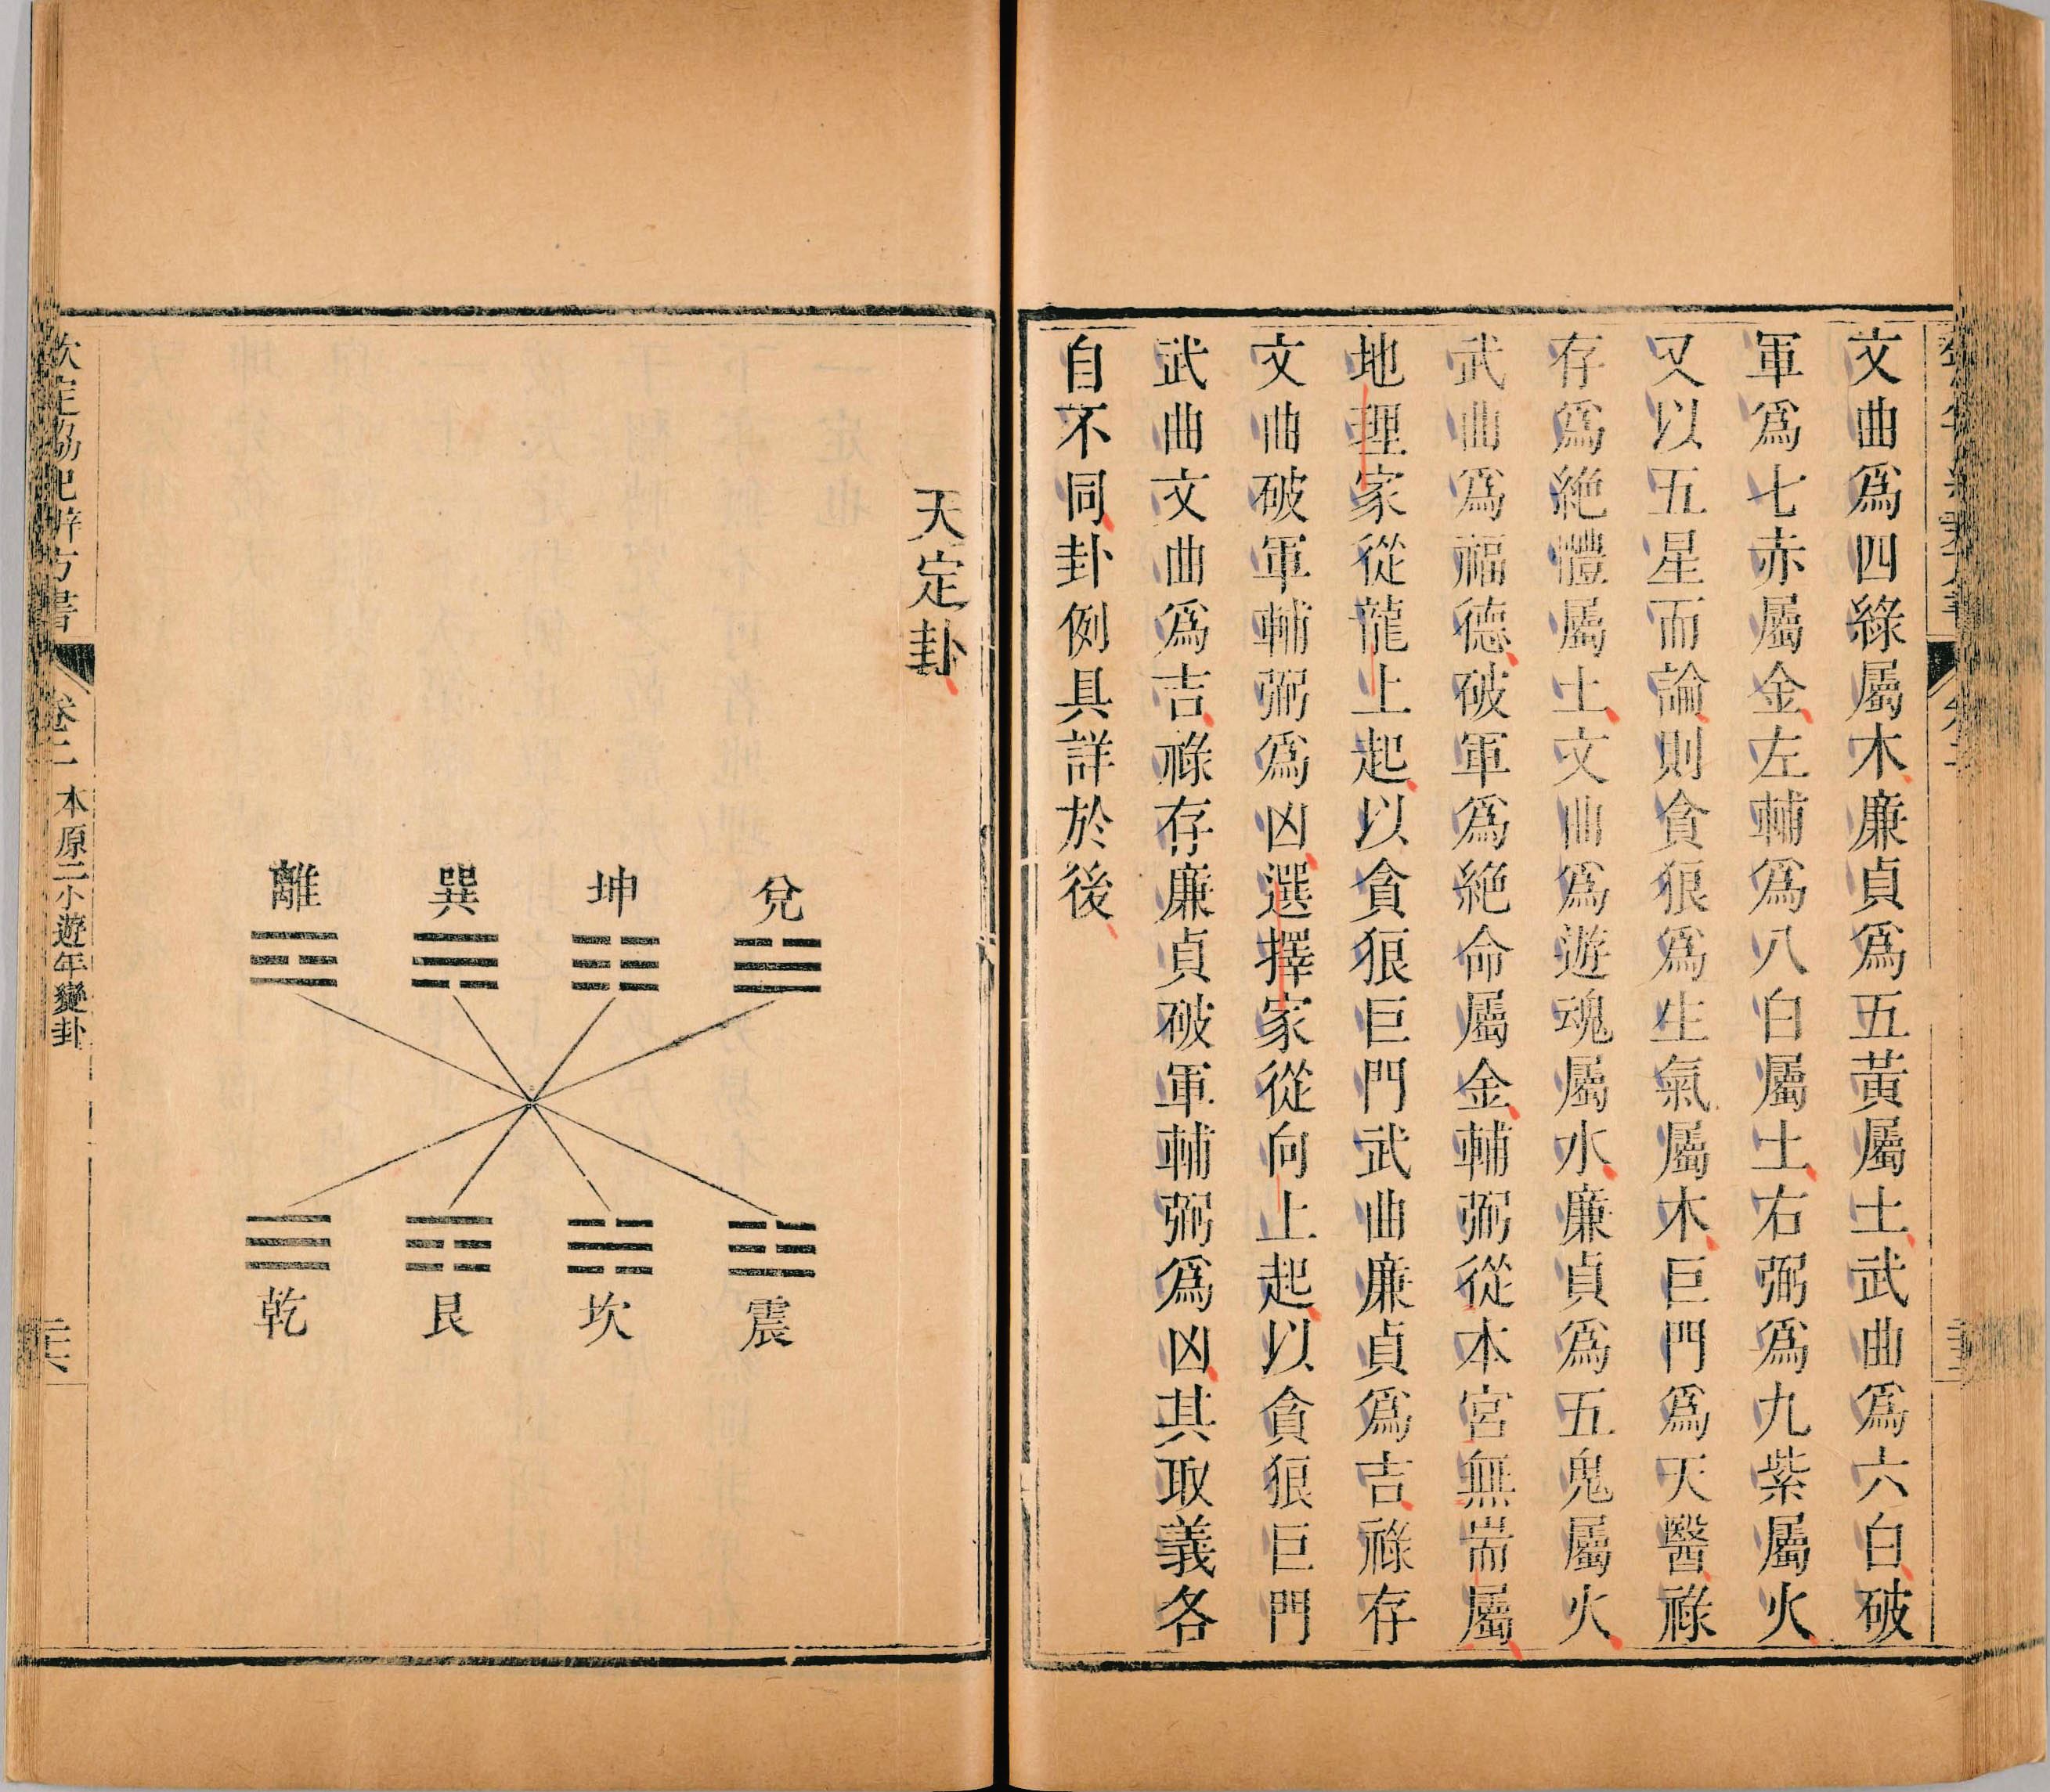 文曲爲四綠屬木廉貞爲五黃屬土武曲爲六白破
軍爲七赤屬金左輔爲八白屬土右弼爲九紫屬火
又以五星而論則貪狼爲生氣屬木巨門爲天醫祿
存爲絶體屬土文曲爲遊魂屬水廉貞爲五鬼屬火
武曲爲福德破軍爲絶命屬金輔弼從本宮無耑屬
地理家從龍上起以貪狼巨門武曲廉貞爲吉祿存
文曲破軍輔弼爲凶選擇家從向上起以貪狼巨門
武曲文曲爲吉祿存廉貞破軍輔弼爲凶其取義各
自不同卦例具詳於後
天定卦
兌
坤
巽
離
震
坎
艮
乾
欽定協紀辨方書
卷二 本原二 小遊年變卦